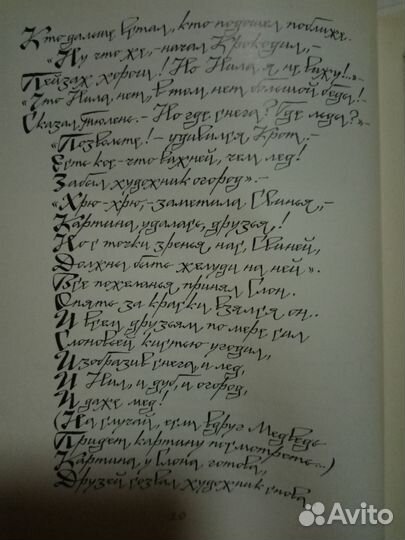 Кто дальше встал, кто подошел поближе.
«Ну что же,– начал Крокодил,–
Пейзаж хорош! Но Нила я не вижу!..»
«Что Нила нет, в том нет большой беды!–
Сказал Тюлень.– Но где снега? Где льды?»–
«Позвольте!– удивился Крот,–
Есть кое-что важней, чем лед!
Забыл художник огород».–
«Хрю-хрю,– заметила Свинья,–
Картина удалась, друзья!
Но с точки зренья нас, Свиней,
Должны быть желуди на ней».
Все пожеланья принял Слон.
Опять за краски взялся он.
И всем друзьям по мере сил
Слоновьей кистью угодил,
Изобразив снега, и лед,
И Нил, и дуб, и огород,
И даже мед!
(На случай, если вдруг Медведь
Придет картину посмотреть...)
Картина у Слона готова,
Друзей созвал художник снова.
Avito